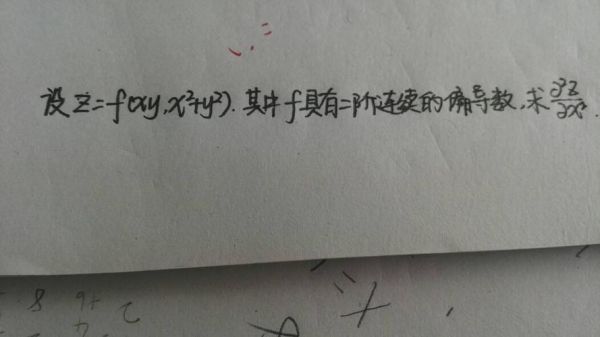 设 z=f(xy,x²+y²).其中f具有二阶连续的偏导数,求∂²z/∂x².